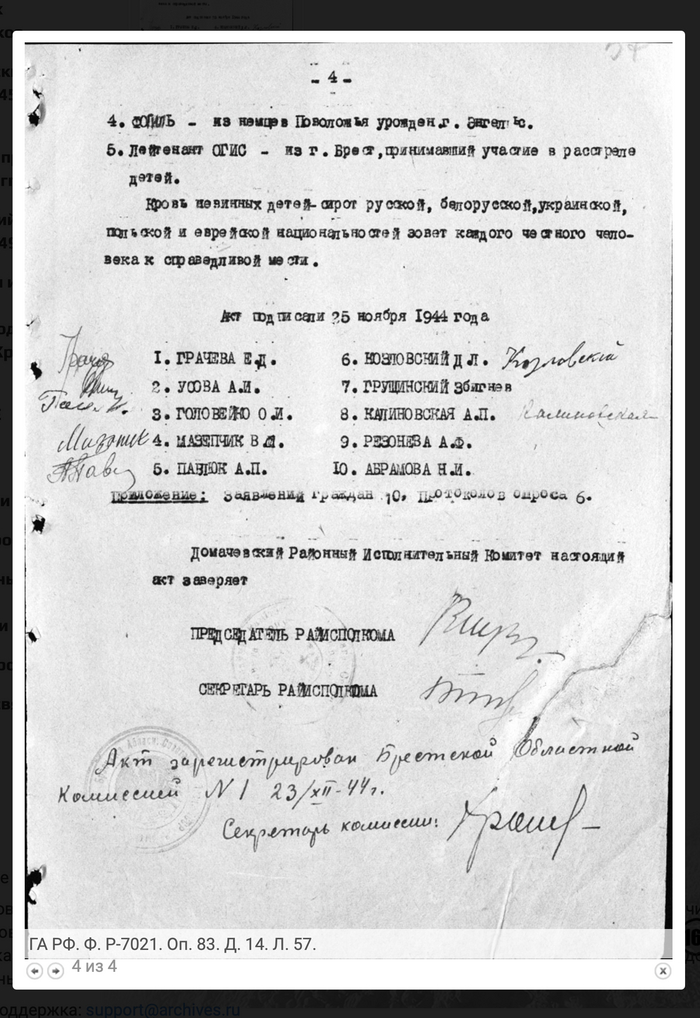 - 4 -
4. ФОГИЛЬ - из немцев Поволожья урожден.г. Энгельс.
5. Лейтенант ОГИС - из г. Брест,принимавший участие в расстреле
детей.
Кровь невинных детей-сирот русской, белорусской,украинской,
польской и еврейской национальностей зовет каждого честного чело-
века к справедливой мести.
Акт подписали 25 ноября 1944 года
1. ГРАЧЕВА Е.Д. 6. КОЗЛОВСКИЙ Д.Л. Козловский
2. УСОВА А.И. 7. ГРУЩИНСКИЙ Збигнев
3. ГОЛОВЕЙКО О.И. 8. КАЛИНОВСКАЯ А.П. Калиновская
Мазепчик 4. МАЗЕПЧИК В.Я. 9. РЕЗОНЕВА А.Ф.
5. ПАВЛЮК А.П. 10. АБРАМОВА Н.И.
Приложение: Заявлений граждан 10. Протоколов опроса 6.
Домачевский Районный Исполнительный Комитет настоящий
акт заверяет
ПРЕДСЕДАТЕЛЬ РАЙИСПОЛКОМА
СЕКРЕТАРЬ РАЙИСПОЛКОМА
Акт зарегистрирован Брестской Областной
Комиссией N 1 23/XII-44г.
Секретарь комиссии:
ГА РФ. Ф. Р-7021. Оп. 83. Д. 14. Л. 57.
4 из 4
support@archives.ru